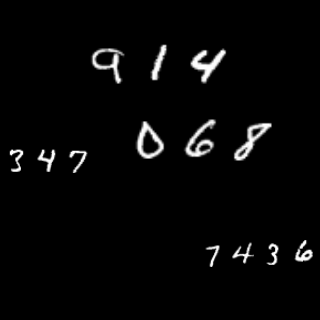 914
068
347
7436